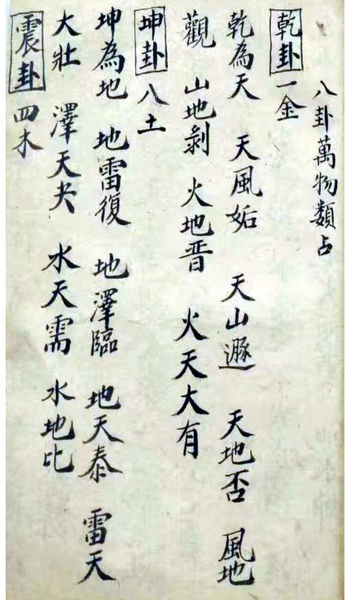 八卦萬物類占
乾卦一金
乾為天 天風姤 天山遯 天地否 風地
觀 山地剝 火地晋 火天大有
坤卦八土
坤為地 地雷復 地澤臨 地天泰 雷天
大壯 澤天夬 水天需 水地比
震卦四木